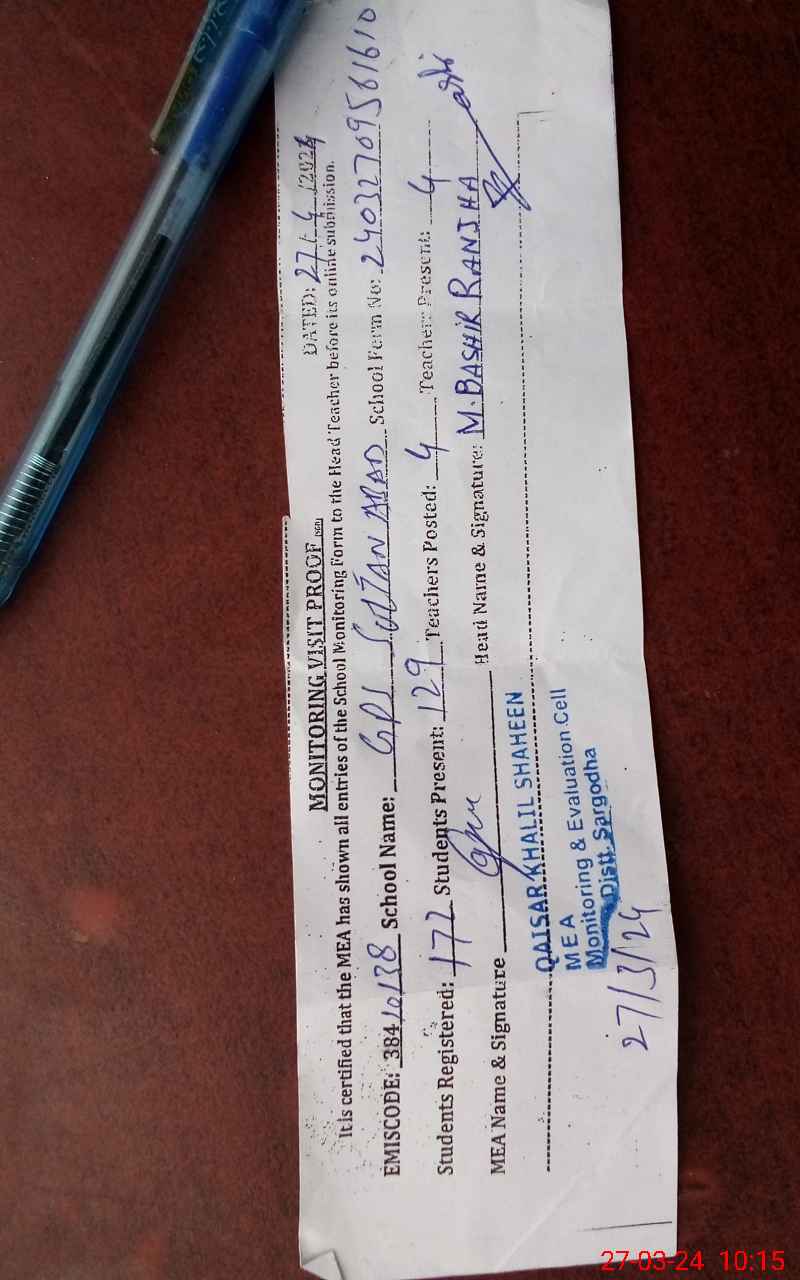 MONITORING VISIT PROOF (SGD)
DATED: 27/-4 /2024
It is certified that the MEA has shown all entries of the School Monitoring Form to the Head Teacher before its online submission.
EMISCODE: 38410138 School Name: GPS SULTAN ABAD School Form No: 2403270956 1610
Students Registered: 172 Students Present: 129 Teachers Posted: 4 Teachers Present: 4
MEA Name & Signature Head Name & Signature: M. BASHIR RANJHA
QAISAR KHALIL SHAHEEN
MEA
Monitoring & Evaluation Cell
Distt. Sargodha
27/3/24
27-03-24 10:15